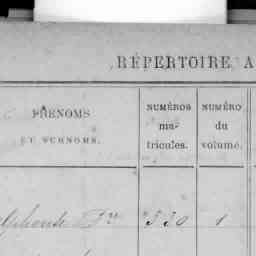 RÉPERTOIRE A
PRÉNOMS
ET SURNOMS.
NUMÉROS
ma-
tricules.
NUMÉRO
du
volume.
530 1